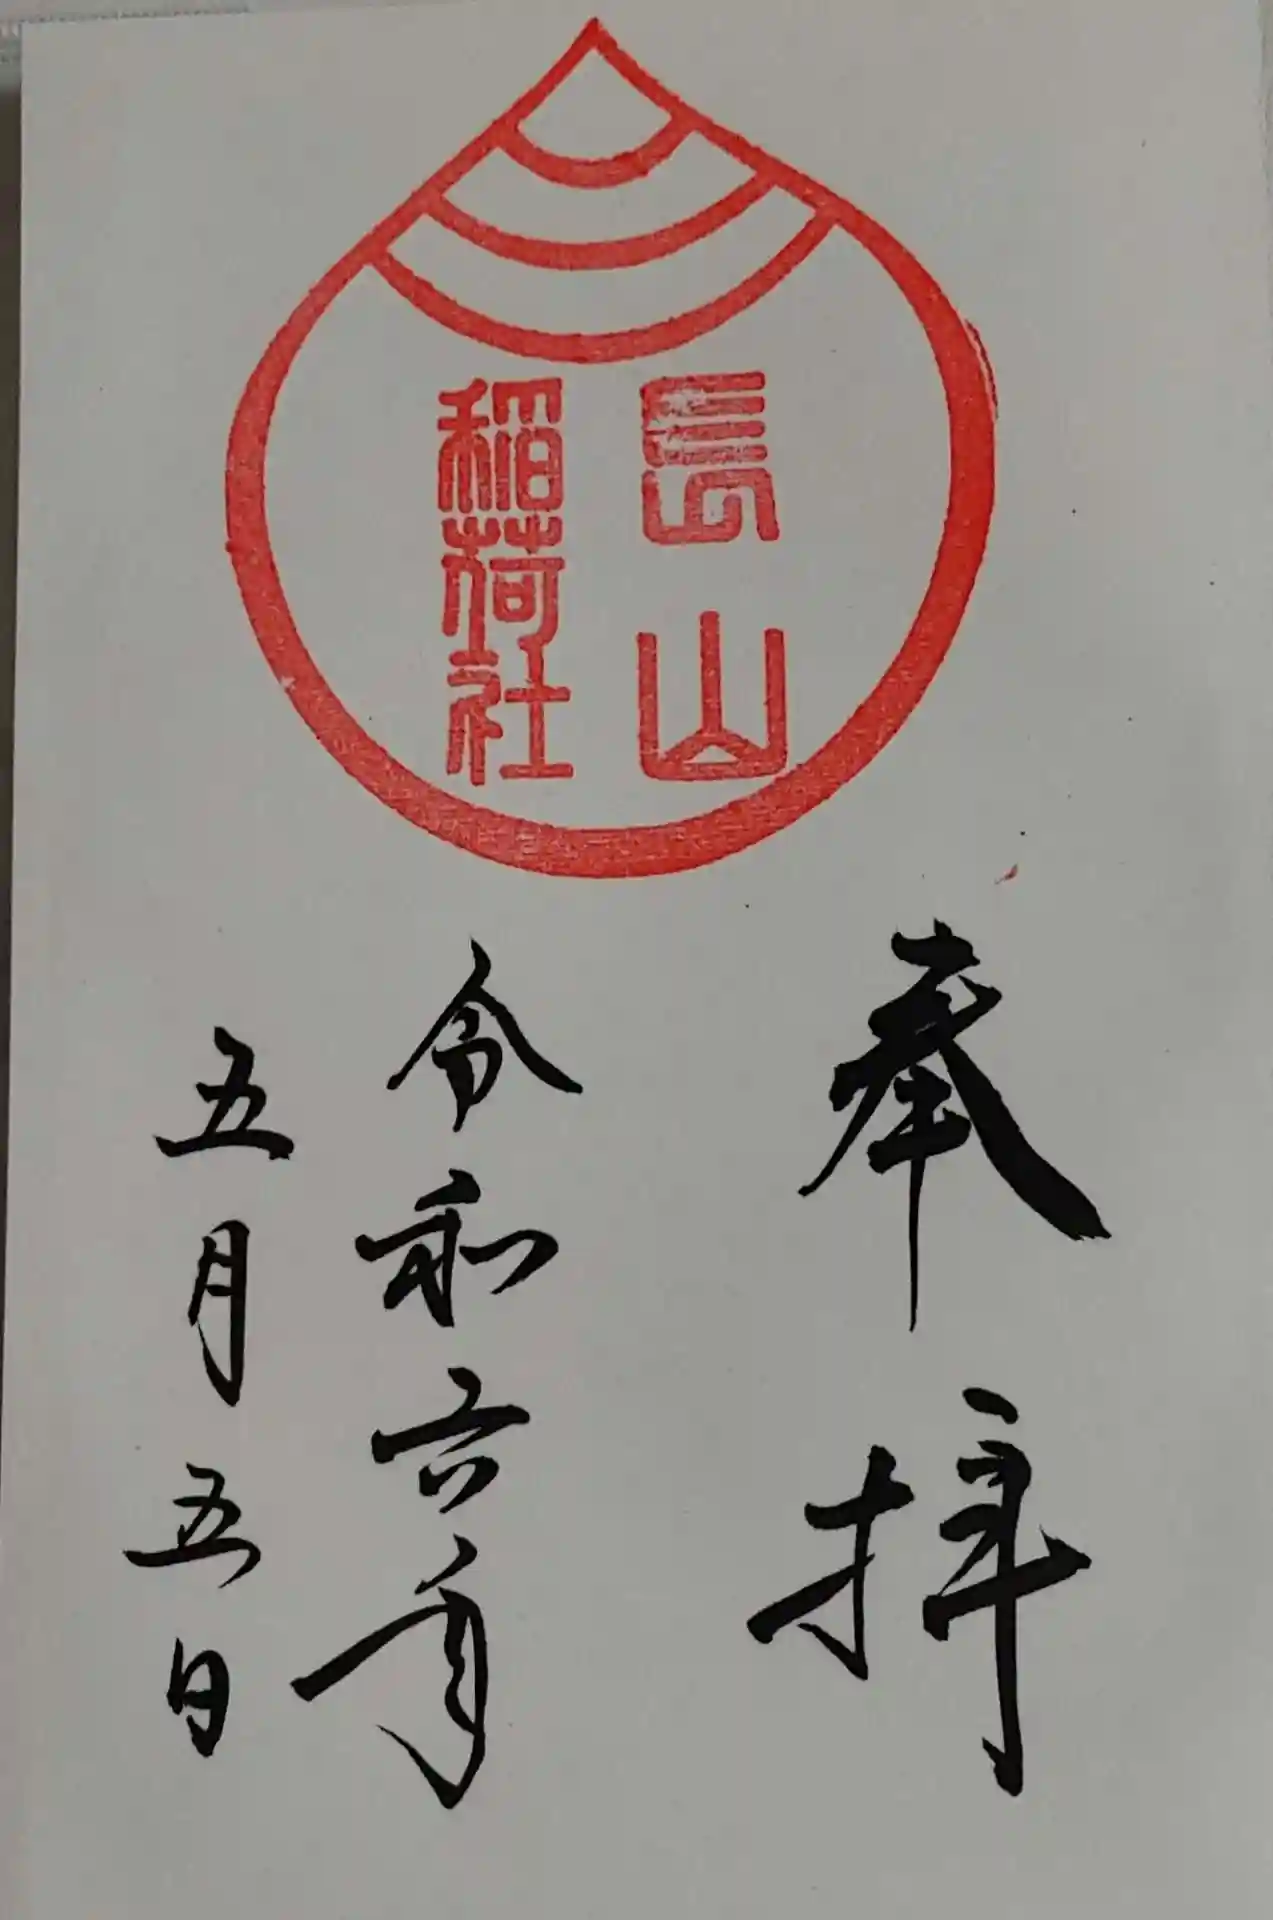 長山
稲荷社
奉拝
令和六年
五月五日